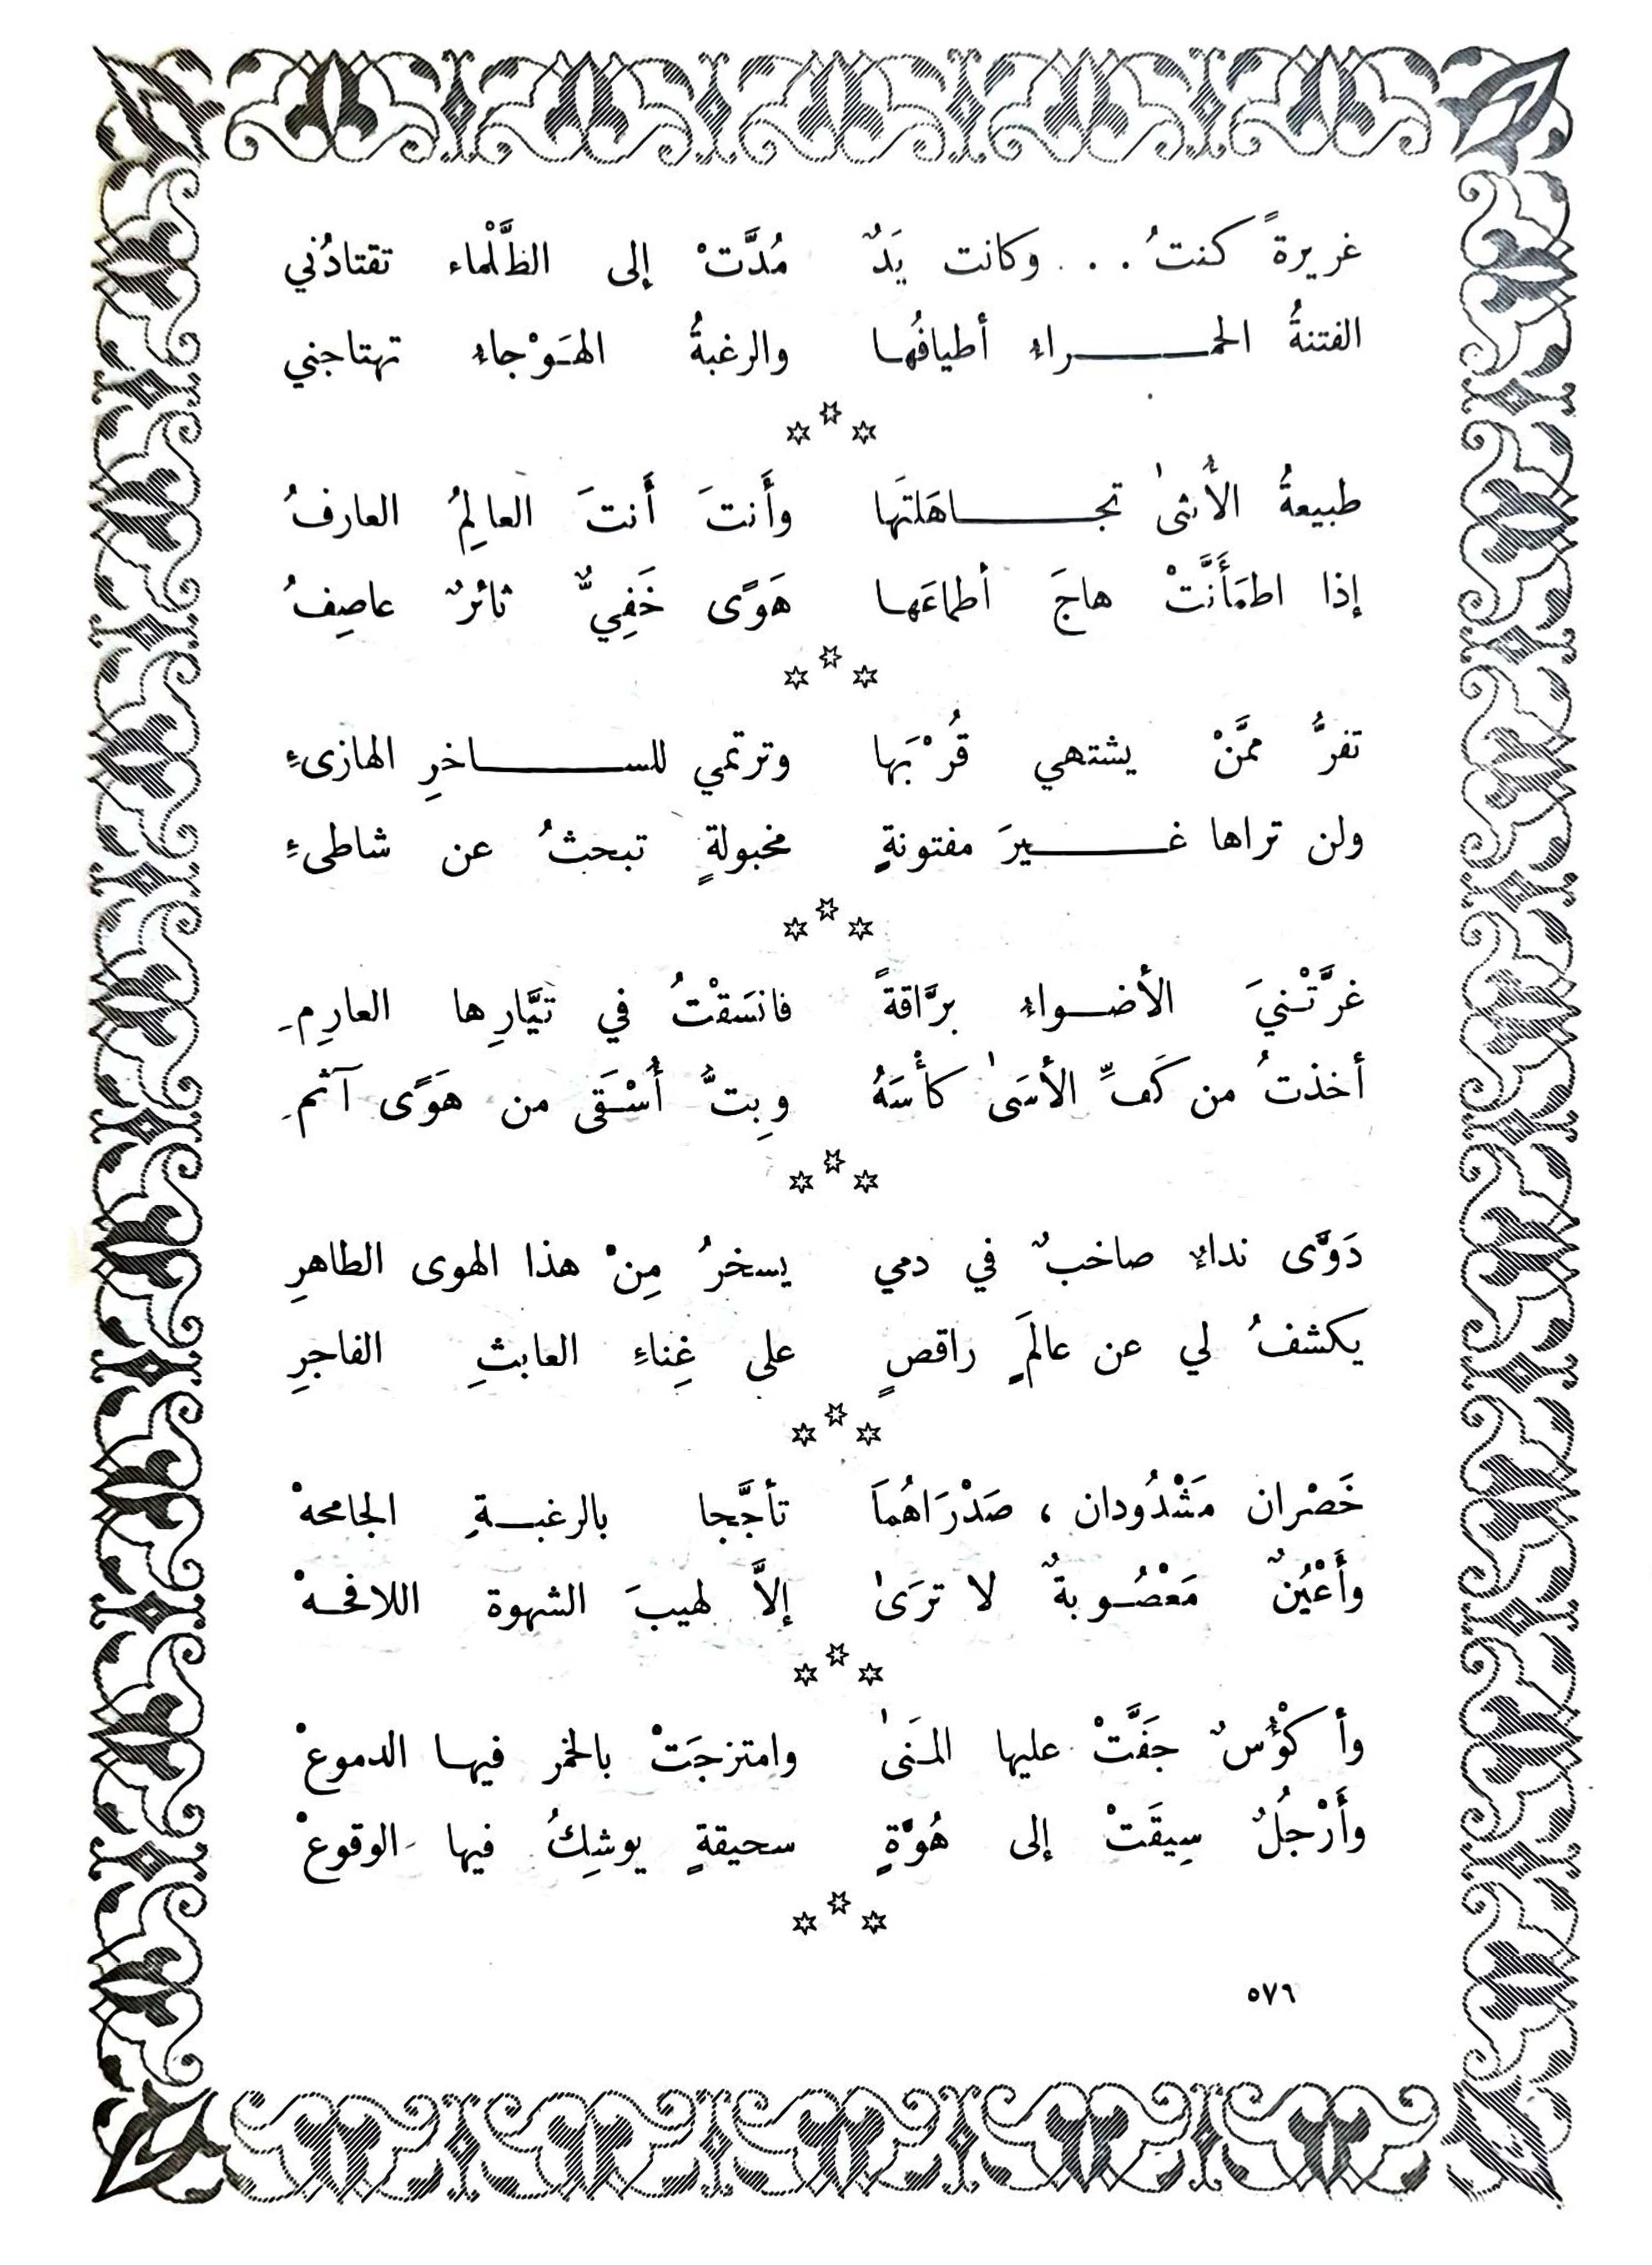 غريرةً كنتُ . . . وكانت يَدٌ مُدَّتْ إلى الظَّلْماء تقتادُني
الفتنةُ الحمـــــــراءِ أطيافُها والرغبةُ الهَـوْجاءِ تهتاجني
☆ ☆ ☆
طبيعةُ الأُنثىٰ تجـــــــاهَلتَها وأَنتَ أَنتَ العالِمُ العارفُ
إذا اطمَأَنَّتْ هاجَ أطماعَها هَوًى خَفِيٌّ ثائرٌ عاصِفُ
☆ ☆ ☆
تفرُّ ممَّنْ يشتهي قُرْبَها وترتمي للســـــــاخرِ الهازىءِ
ولن تراها غـــــــيرَ مفتونةٍ مخبولةٍ تبحثُ عن شاطىءِ
☆ ☆ ☆
غرَّتْنيَ الأضـــواءِ برَّاقةً فانسَقْتُ في تيَّارِها العارِمِ
أخذتُ من كَفِّ الأسَىٰ كأْسَهُ وبِتُّ أُسْـقَى من هَوًى آثمِ
☆ ☆ ☆
دَوَّى نداءٌ صاخبٌ في دمي يسخرُ مِنْ هذا الهوى الطاهرِ
يكشفُ لي عن عالَمٍ راقصٍ على غِناءِ العابثِ الفاجرِ
☆ ☆ ☆
خَصْران مَشْدُودان ، صَدْرَاهُمَا تأجَّجا بالرغبـــةِ الجامحهْ
وأَعْيُنٌ مَعْصُـوبةٌ لا ترَىٰ إلاَّ لهيبَ الشهوة اللافحـهْ
☆ ☆ ☆
وأكؤْسٌ جَفَّتْ عليها المـَنىٰ وامتزجَتْ بالخمر فيهـا الدموعْ
وأَرْجُلٌ سِيقَتْ إلى هُوَّةٍ سحيقةٍ يوشِكُ فيها الوقوعْ
☆ ☆ ☆
٥٧٦